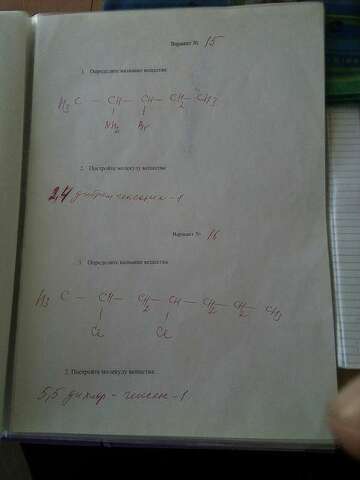 Вариант № 15
1. Определите название вещества
H3C — CH — CH — CH2 — CH3
NH2 Br
2. Постройте молекулу вещества
2,4
Вариант № 16
1. Определите название вещества
H3C — CH — CH2 — CH — CH2 — CH2 — CH3
Cl Cl
2. Постройте молекулу вещества
5,5 дихлор - гексен -1